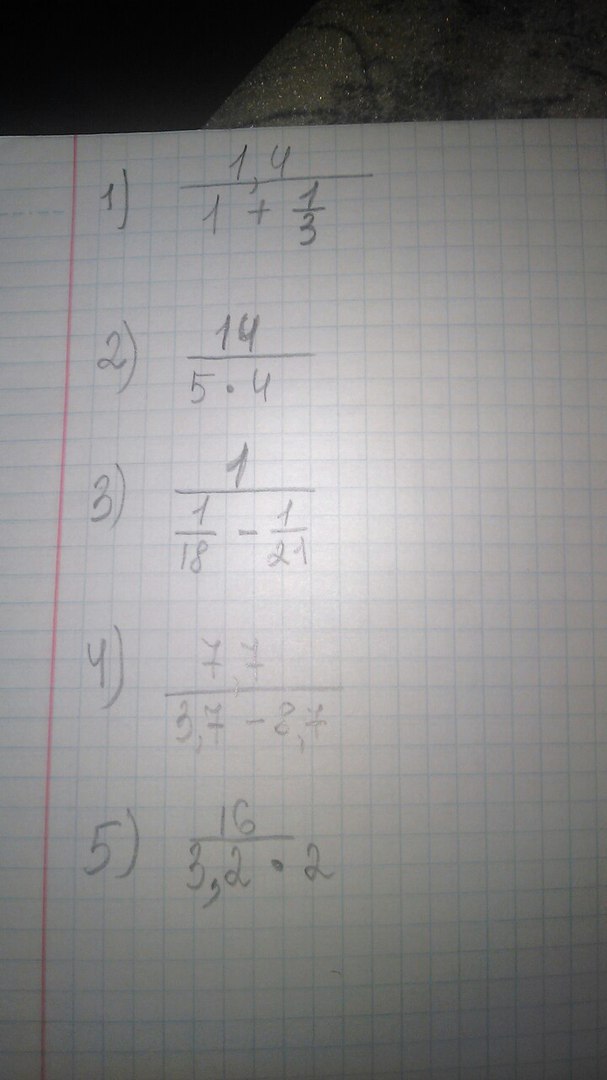 1) 1,4 / (1 + 1/3)
2) 14 / (5 · 4)
3) 1 / (1/18 - 1/21)
4) 7,7 / (3,7 - 8,7)
5) 16 / (3,2 · 2)